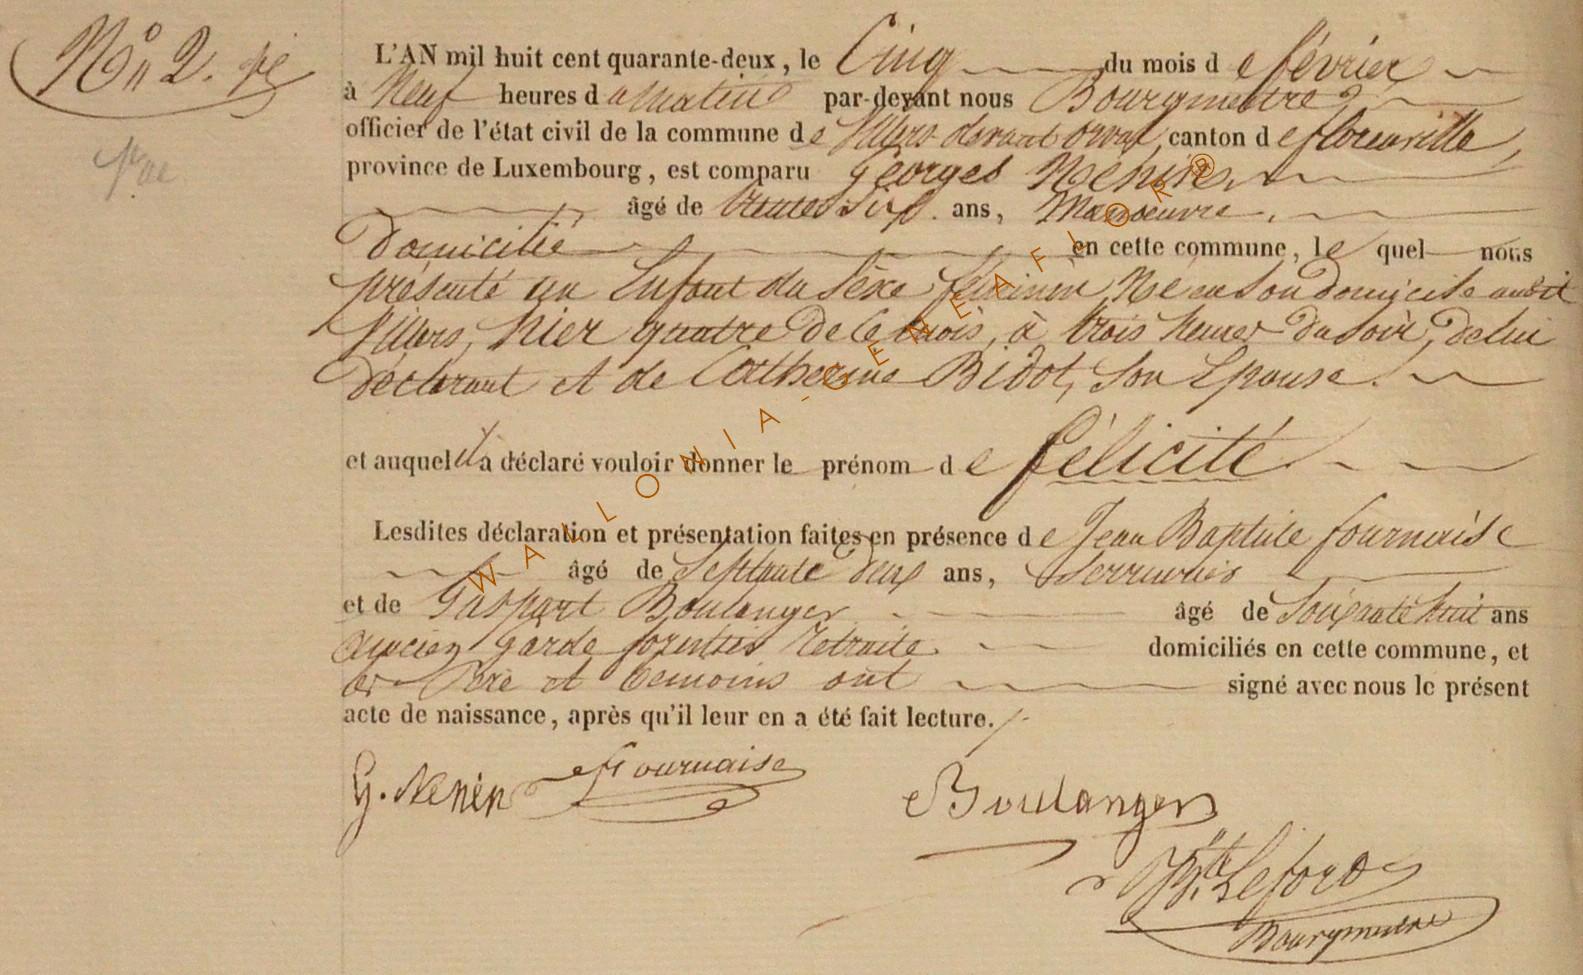 No 2.
L'AN mil huit cent quarante-deux, le Cinq du mois de février
à Neuf heures du matin par-devant nous Bourgmestre
officier de l'état civil de la commune de Villers devant orval, canton de florenville,
province de Luxembourg, est comparu Georges Nenin
âgé de trente Six ans, Manoeuvre,
Domicilié en cette commune, lequel nous
présenté un Enfant du Sexe féminin Né en Son Domicile audit
Villers, hier quatre de Ce mois, à trois heures du Soir, de lui
déclarant et de Catherine Bidot, Son Epouse.
et auquel il a déclaré vouloir donner le prénom de félicité
Lesdites déclaration et présentation faites en présence de Jean Baptiste fournaise
âgé de Septante deux ans, Serrurier
et de Gaspart Boulanger âgé de Soixante huit ans
ancien garde forestier retraité domiciliés en cette commune, et
Père et témoins ont signé avec nous le présent
acte de naissance, après qu'il leur en a été fait lecture.
G. Nenin fournaise
Boulanger
Bourgmestre
WALLONIA-GENEAFLOR®